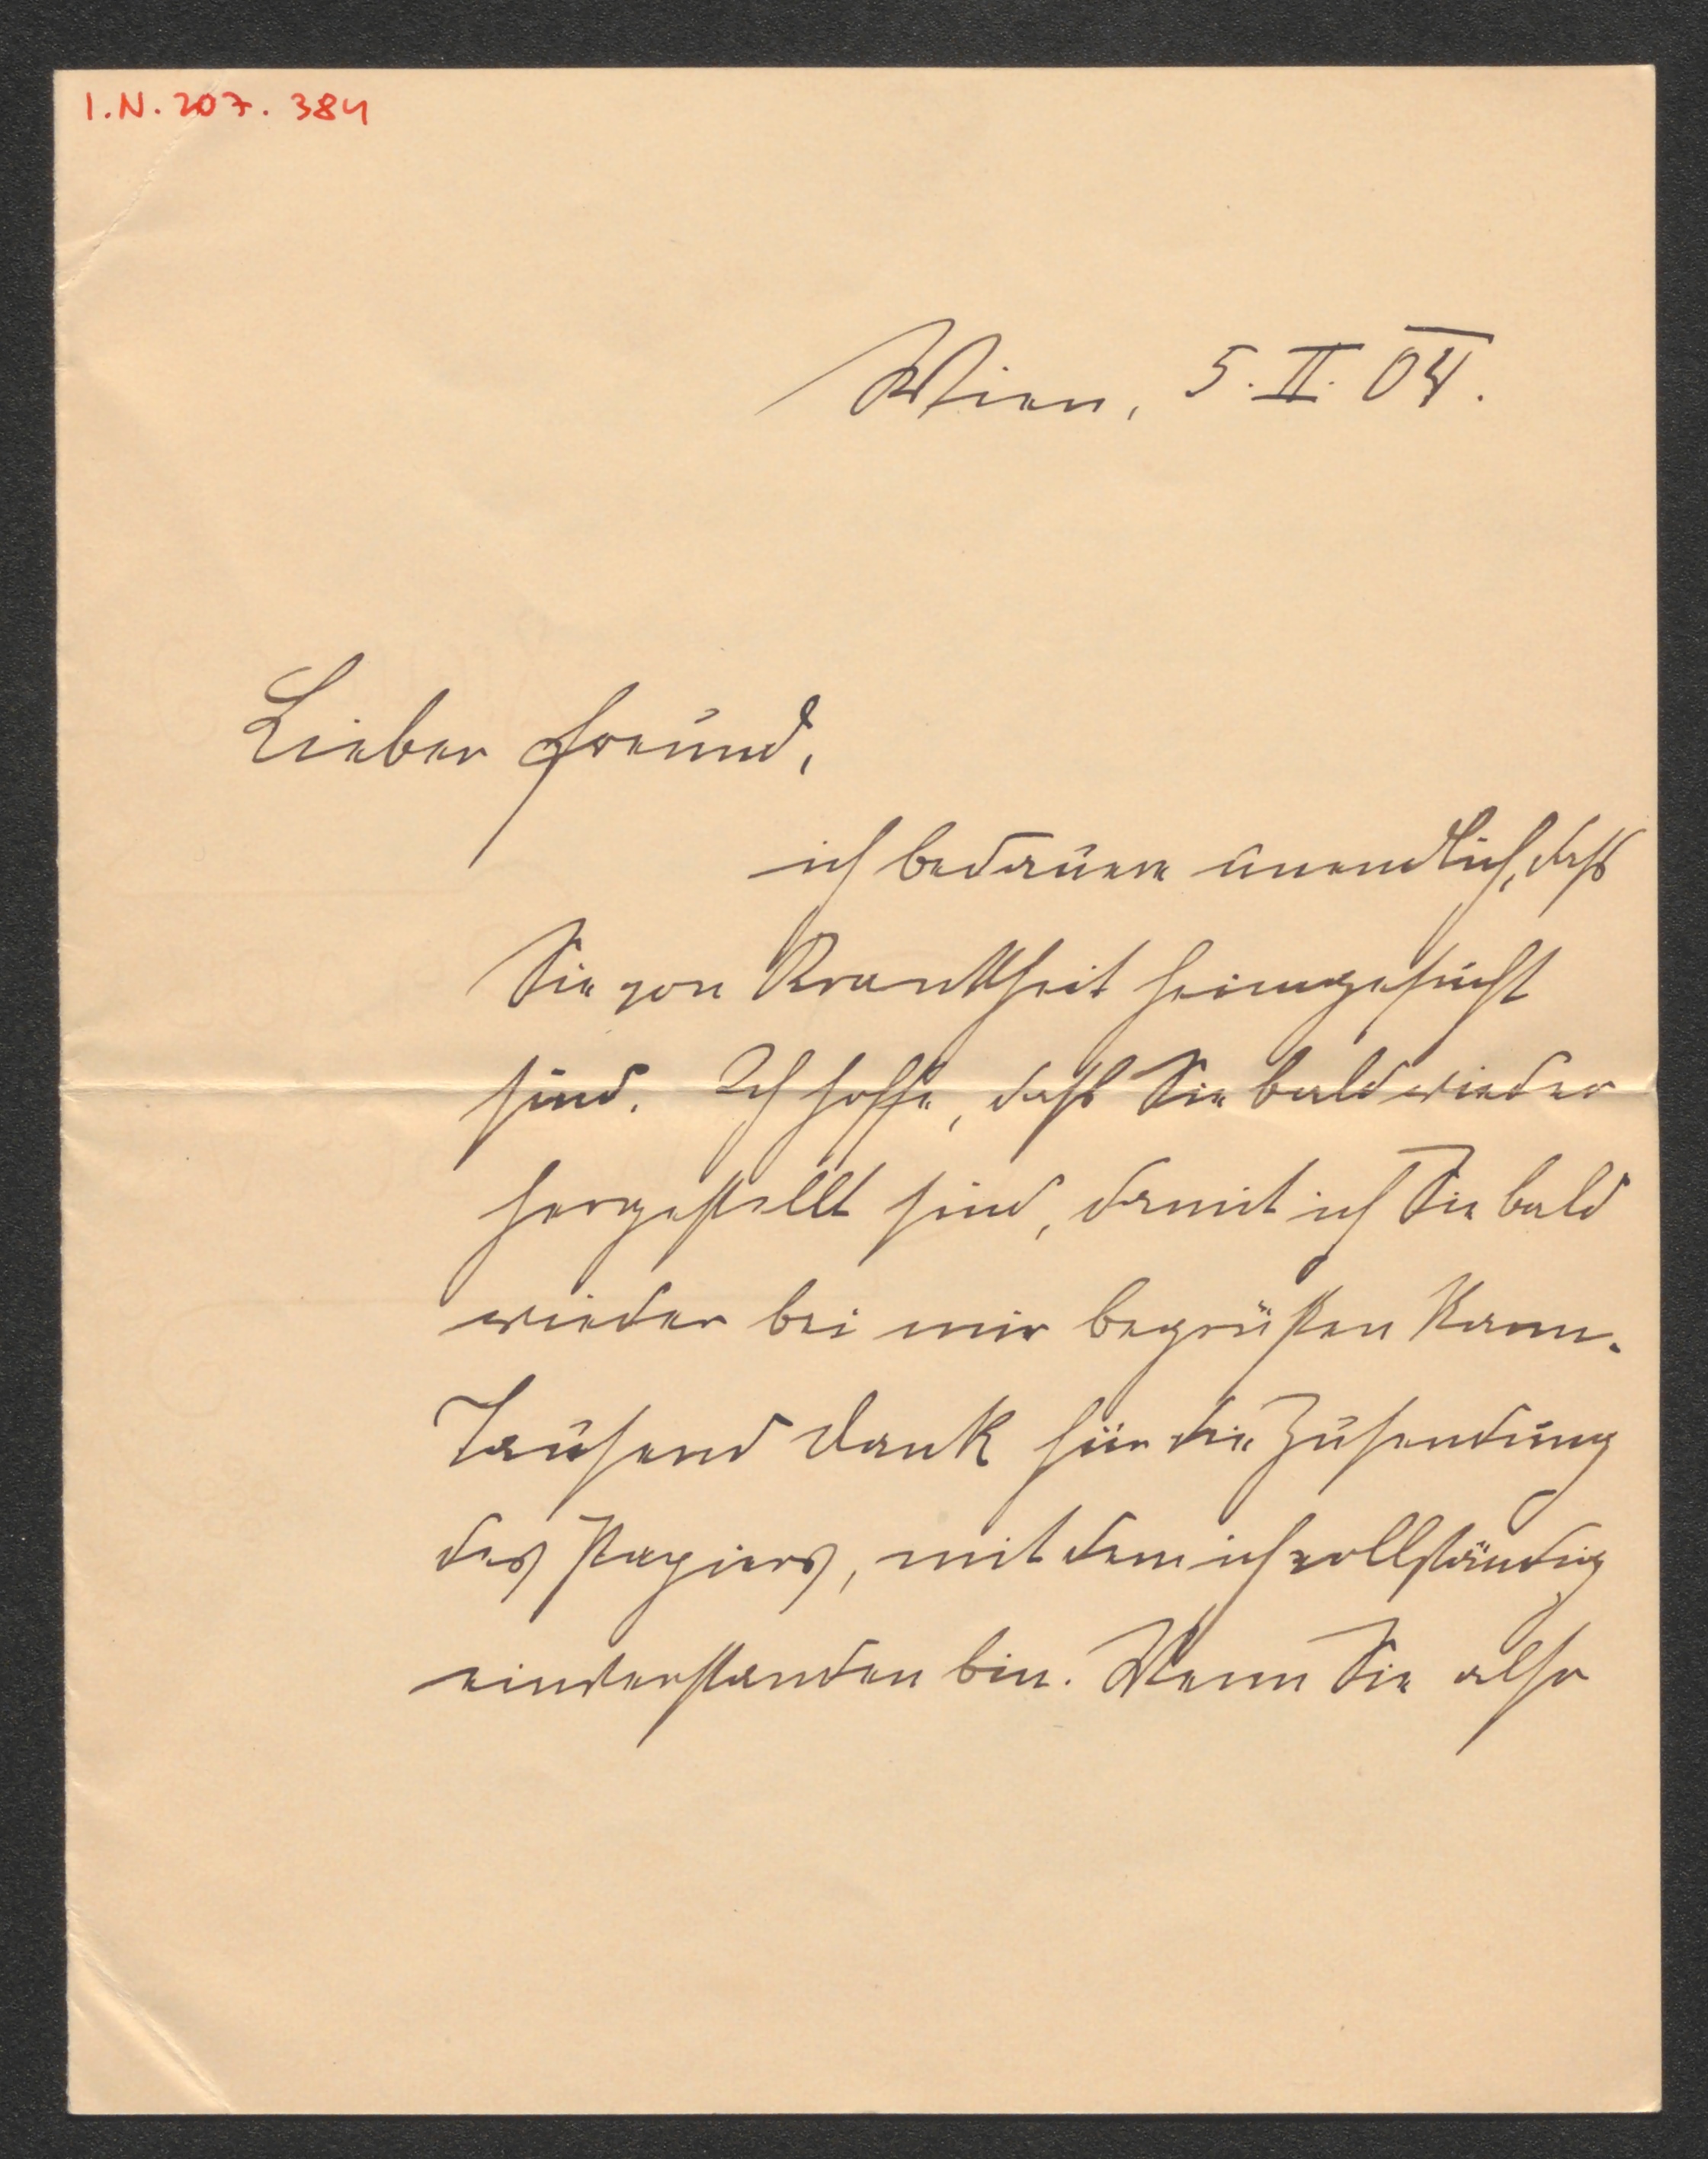 I.N. 207.384
Wien, 5. II. 04.
Lieber Freund,
ich bedauere unendlich, daß
Sie von Krankheit heimgesucht
sind. Ich hoffe, daß Sie bald wieder
hergestellt sind, damit ich Sie bald
wieder bei mir begrüßen kann.
Tausend Dank für die Zusendung
des Papiers, mit dem ich vollständig
einverstanden bin. Wenn Sie also